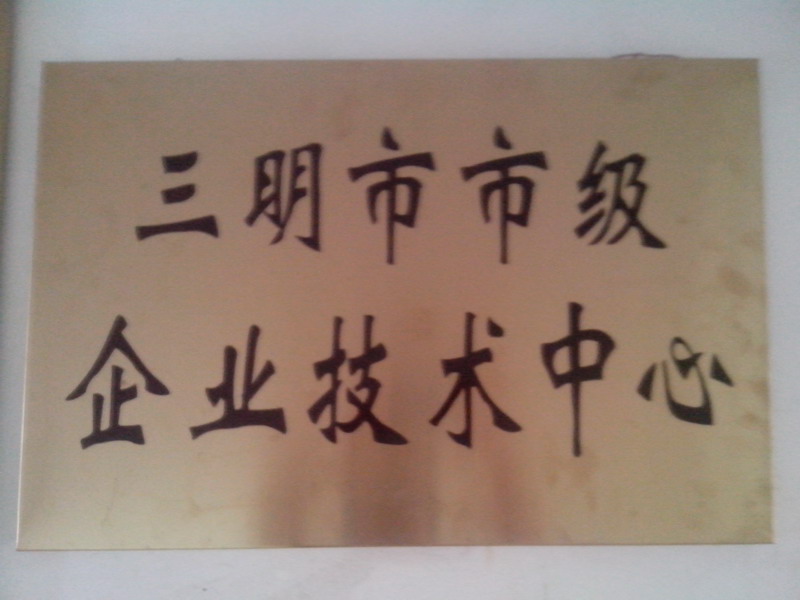 三明市市级
企业技术中心